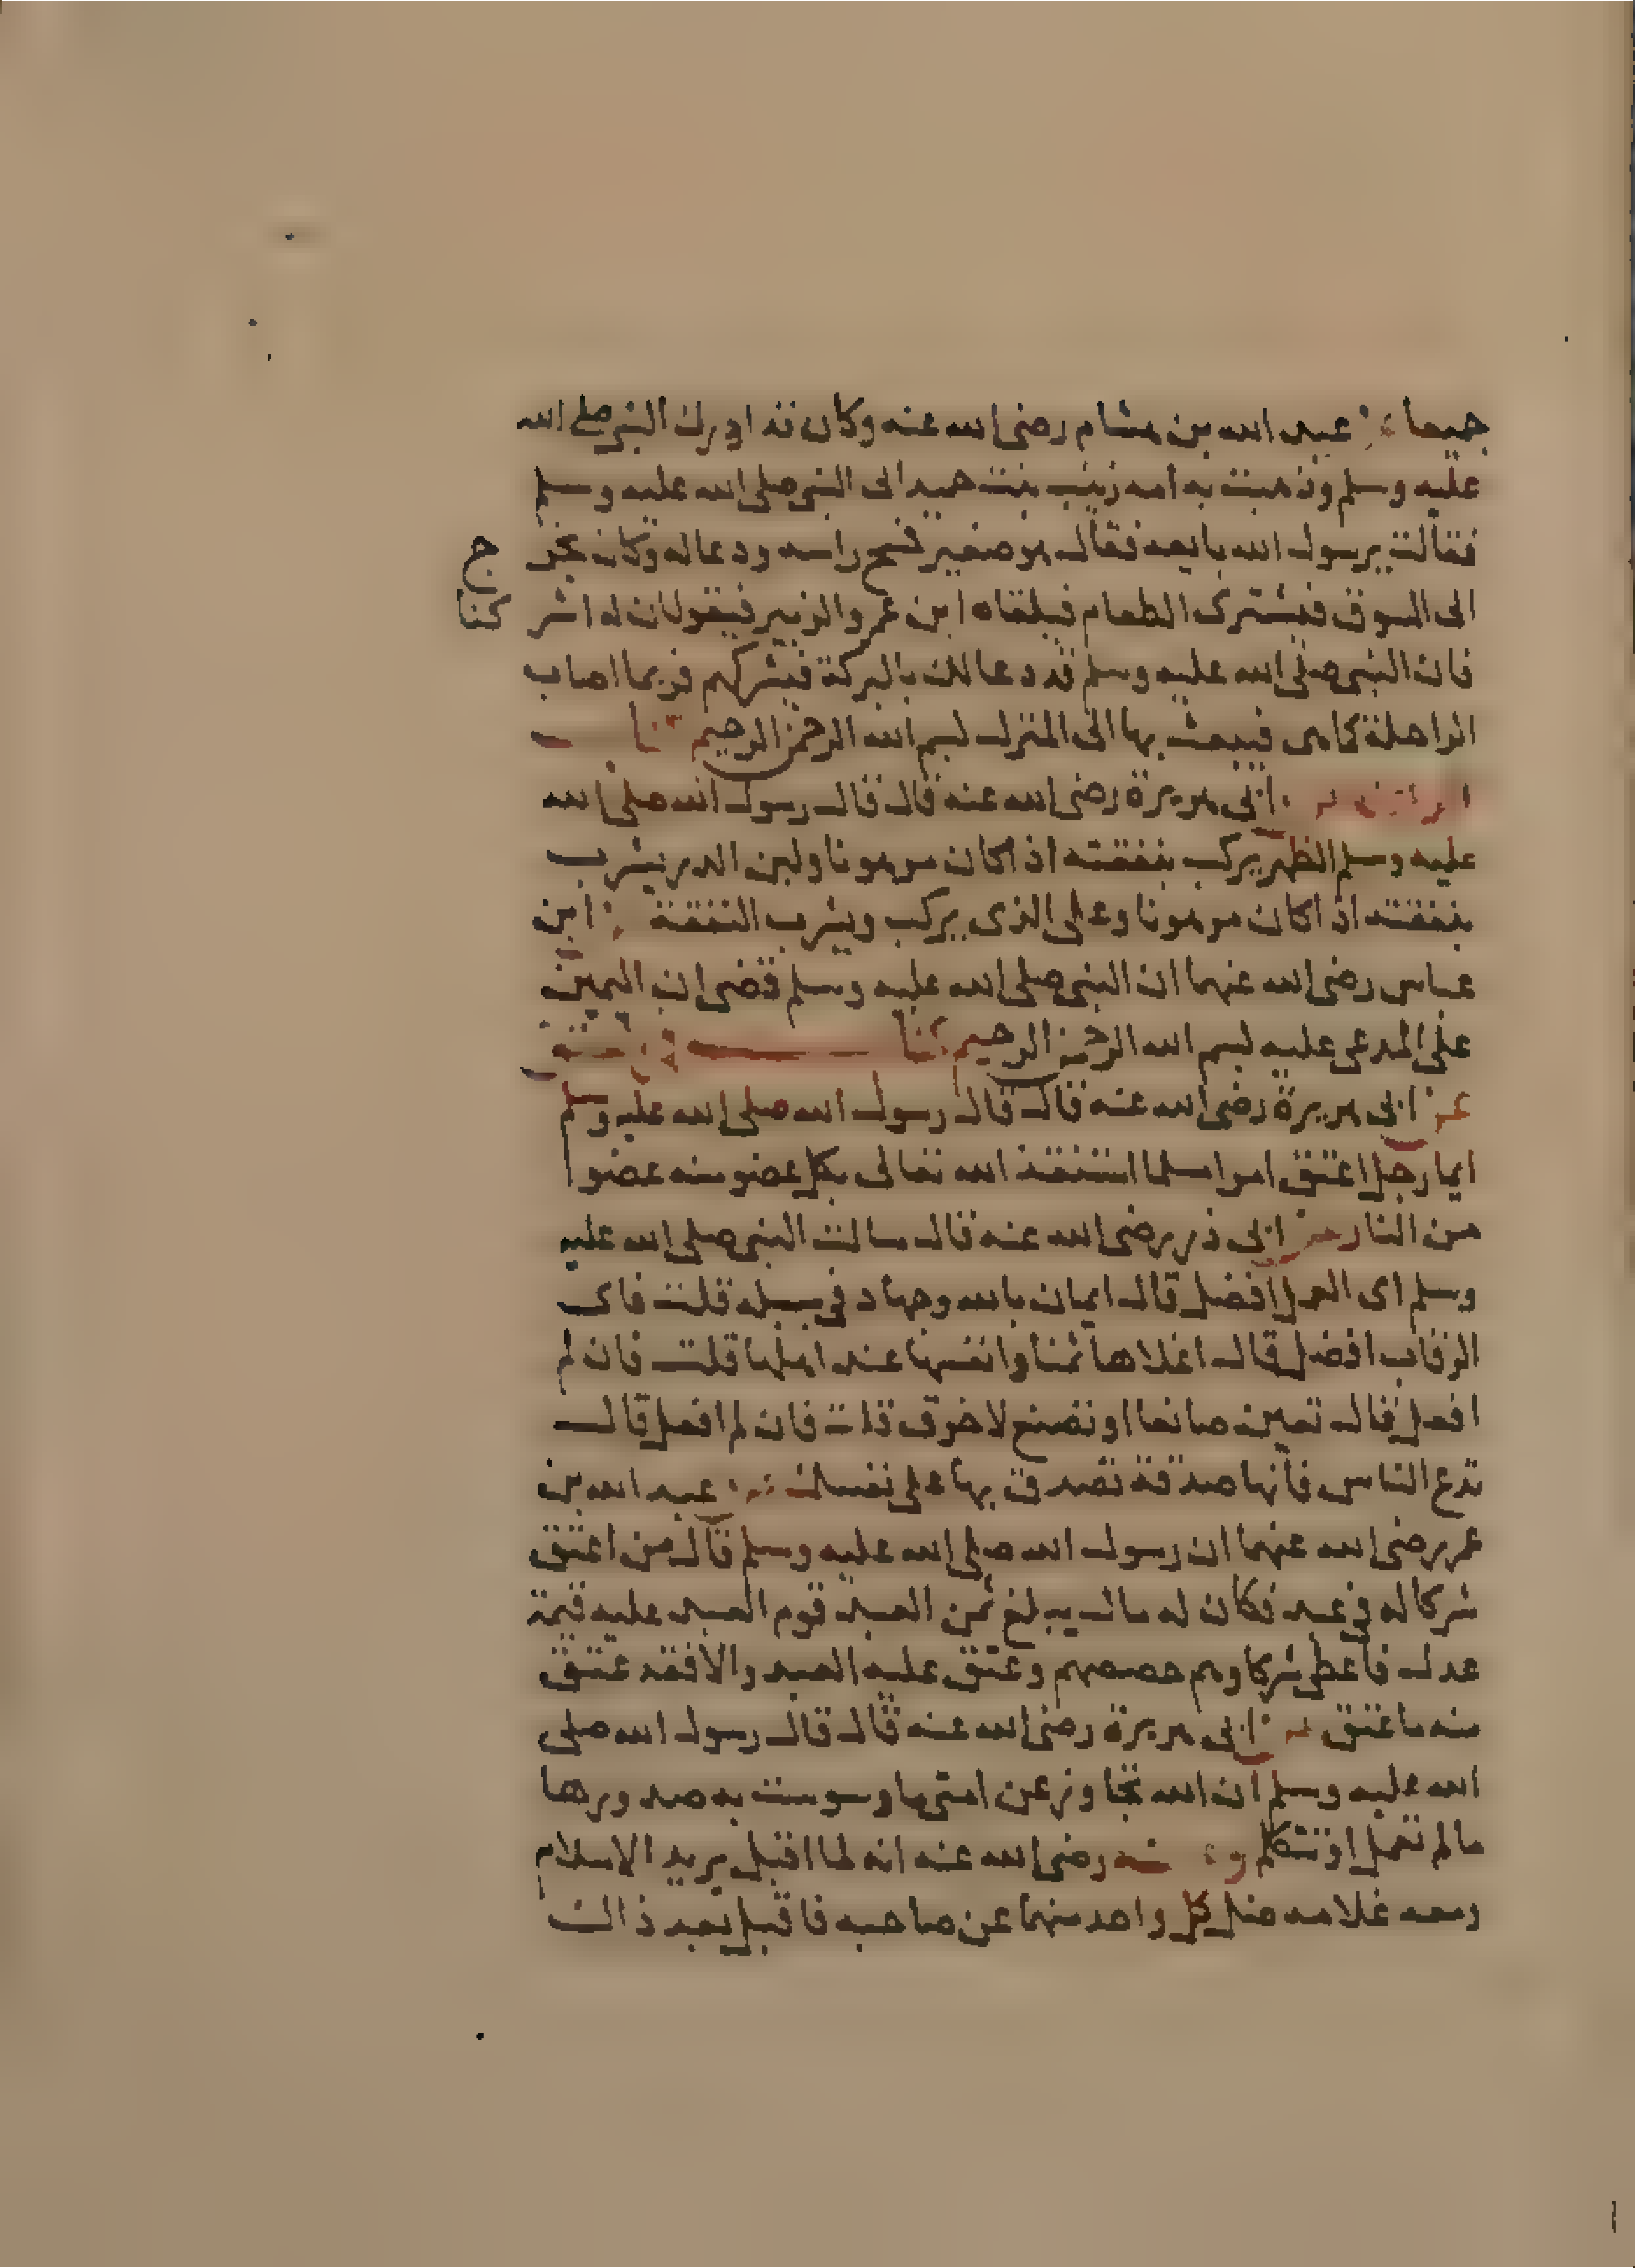 جميعا عن عبد الله بن هشام رضى الله عنه وكان قد ادرك النبي صلى الله
عليه وسلم وذهبت به امه زينب بنت حميد الى النبي صلى الله عليه وسلم
فقالت يرسول الله بايعه فقال هو صغير فمسح راسه ودعا له وكان يخرج
الى السوق فيشترى الطعام فيلقاه ابن عمر والزبير فيقولان له اشركنا
فان النبي صلى الله عليه وسلم قد دعا لك بالبركة فيشركهم فربما اصاب
الراحلة كما هى فيبعث بها الى المنزل بسم الله الرحمن الرحيم
ابى هريرة رضى الله عنه قال قال رسول الله صلى الله
عليه وسلم الظهر يركب بنفقته اذا كان مرهونا ولبن الدر يشرب
بنفقته اذا كان مرهونا وعلى الذى يركب ويشرب النفقة ابن
عباس رضى الله عنهما ان النبي صلى الله عليه وسلم قضى ان اليمين
على المدعى عليه بسم الله الرحمن الرحيم
عن ابى هريرة رضى الله عنه قال قال رسول الله صلى الله عليه وسلم
ايما رجل اعتق امرا مسلما استنقذ الله تعالى بكل عضو منه عضوا
من النار عن ابى ذر رضى الله عنه قال سالت النبي صلى الله عليه
وسلم اى العمل افضل قال ايمان بالله وجهاد في سبيله قلت فاى
الرقاب افضل قال اغلاها ثمنا وانفسها عند اهلها قلت فان لم
افعل قال تعين صانعا او تصنع لاخرق قلت فان لم افعل قال
تدع الناس فانها صدقة تصدق بها على نفسك عن عبد الله بن
عمر رضى الله عنهما ان رسول الله صلى الله عليه وسلم قال من اعتق
شركا له في عبد فكان له مال يبلغ ثمن العبد قوم العبد عليه قيمة
عدل فاعطى شركاوهم حصصهم وعتق عليه العبد والا فقد عتق
منه ما عتق عن ابى هريرة رضى الله عنه قال قال رسول الله صلى
الله عليه وسلم ان الله تجاوز عن امتى ما وسوست به صدورها
ما لم تعمل او تتكلم وعنه رضى الله عنه انه لما اقبل يريد الاسلام
ومعه غلامه ضل كل واحد منهما عن صاحبه فاقبل بعد ذالك